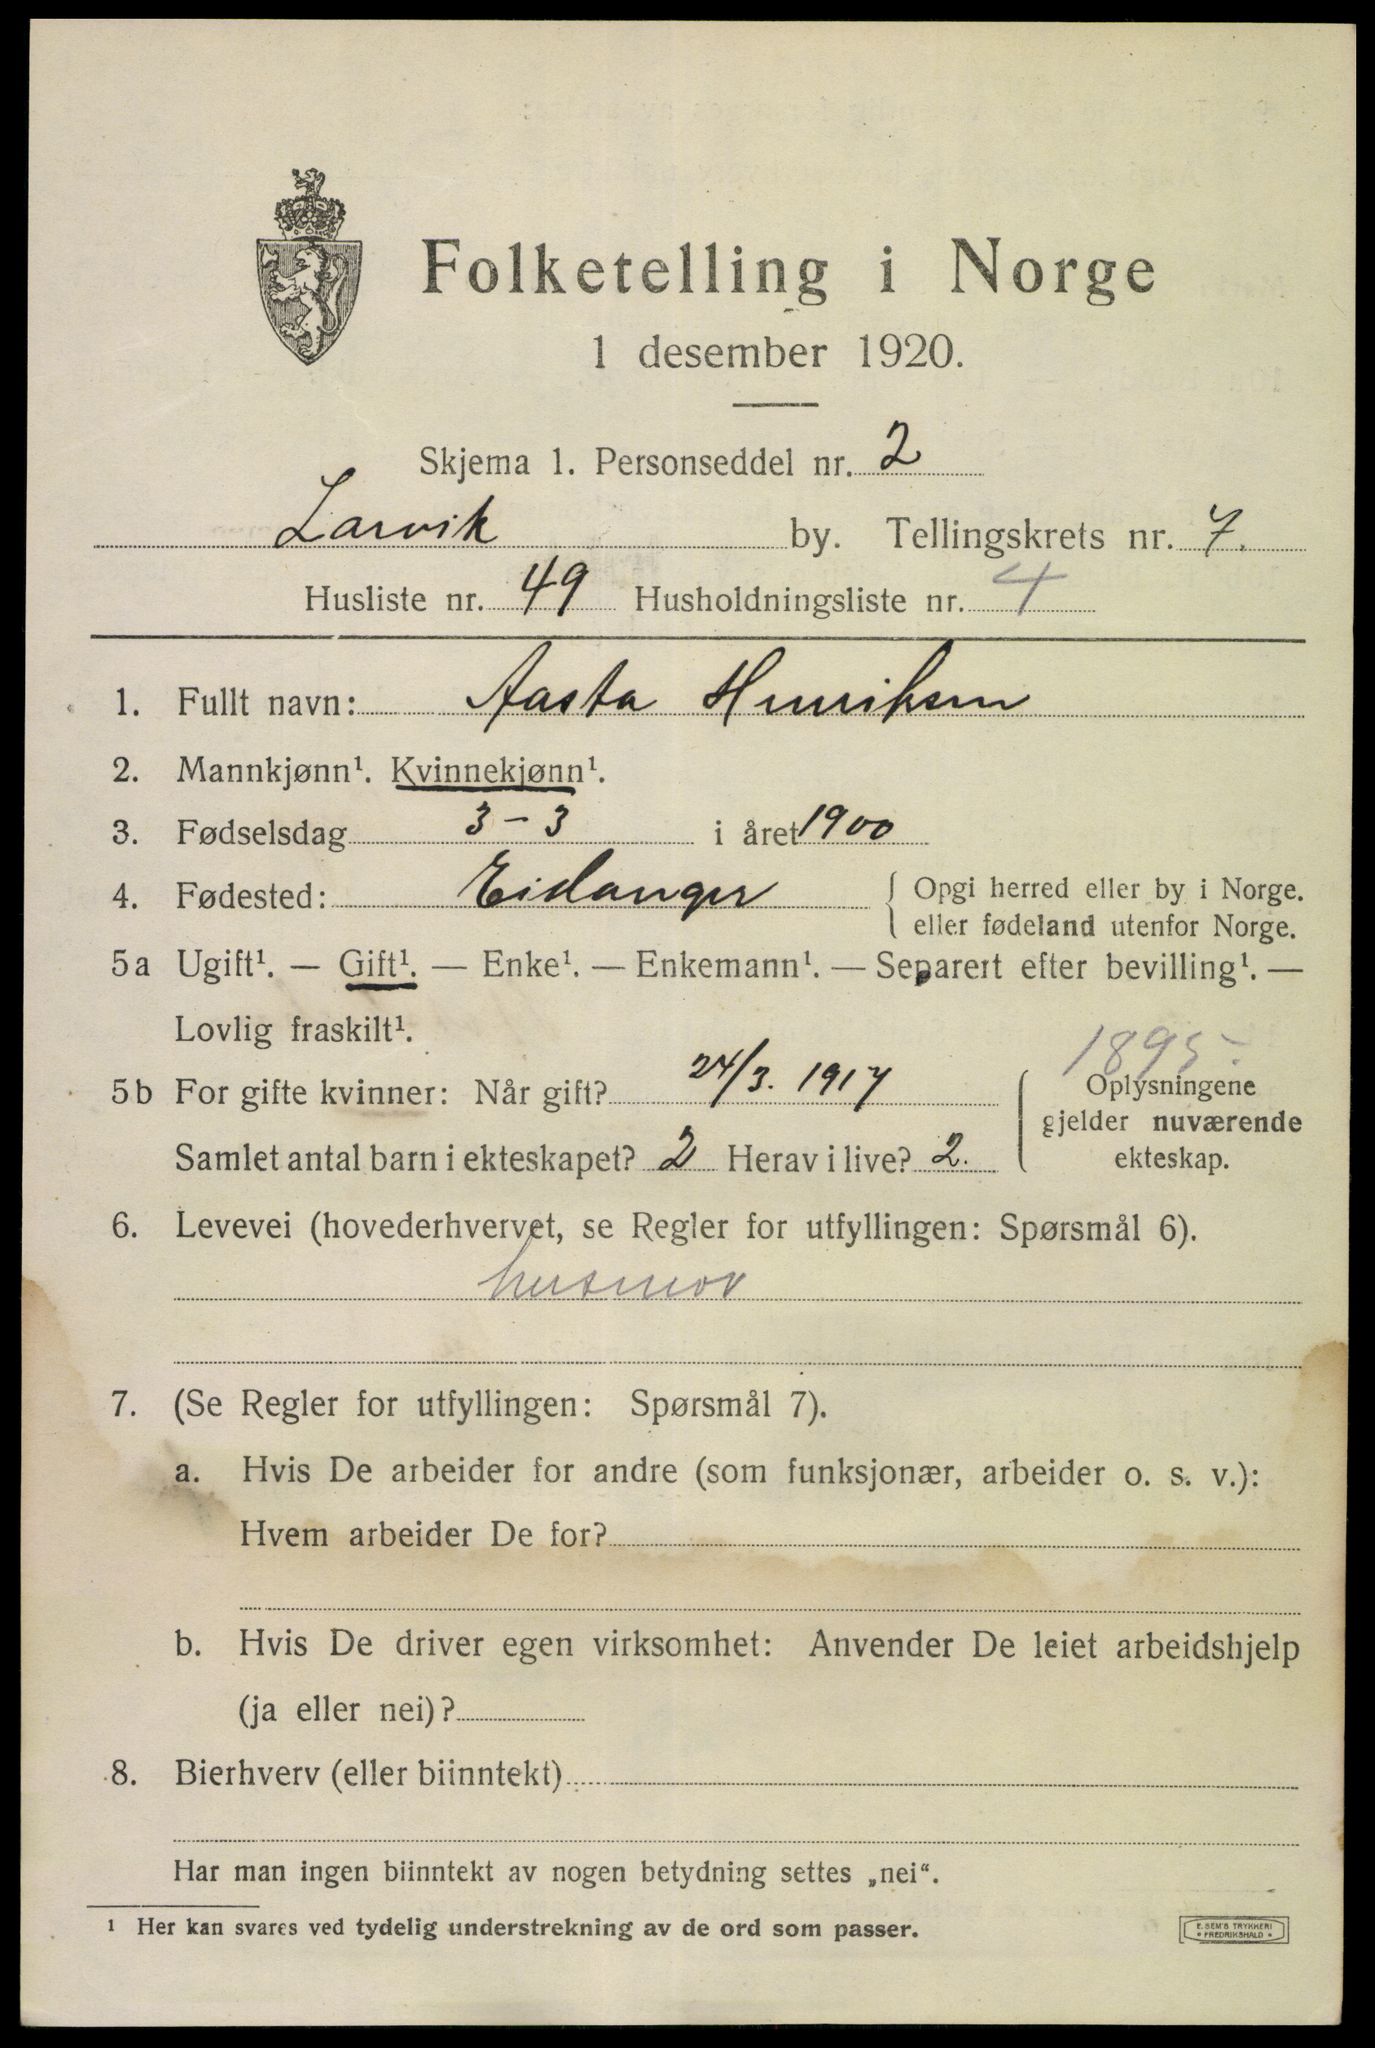 Folketelling i Norge
1 desember 1920.
Skjema 1. Personseddel nr. 2
Larvik by. Tellingskrets nr. 7.
Husliste nr. 49 Husholdningsliste nr. 4
1. Fullt navn: Aasta Henriksen
2. Mannkjønn¹. Kvinnekjønn¹.
3. Fødselsdag 3-3 i året 1900
4. Fødested: Eidanger { Opgi herred eller by i Norge.
eller fødeland utenfor Norge.
5a Ugift¹. — Gift¹. — Enke¹. — Enkemann¹. — Separert efter bevilling¹. —
Lovlig fraskilt¹.
1895.
5b For gifte kvinner: Når gift? 24/3. 1917
Samlet antal barn i ekteskapet? 2 Herav i live? 2.
Oplysningene
gjelder nuværende
ekteskap.
6. Levevei (hovederhvervet, se Regler for utfyllingen: Spørsmål 6).
husmor
7. (Se Regler for utfyllingen: Spørsmål 7).
a. Hvis De arbeider for andre (som funksjonær, arbeider o. s. v.):
Hvem arbeider De for?
b. Hvis De driver egen virksomhet: Anvender De leiet arbeidshjelp
(ja eller nei)?
8. Bierhverv (eller biinntekt)
Har man ingen biinntekt av nogen betydning settes „nei“.
¹ Her kan svares ved tydelig understrekning av de ord som passer.
E. SEM'S TRYKKERI
• FREDRIKSHALD •